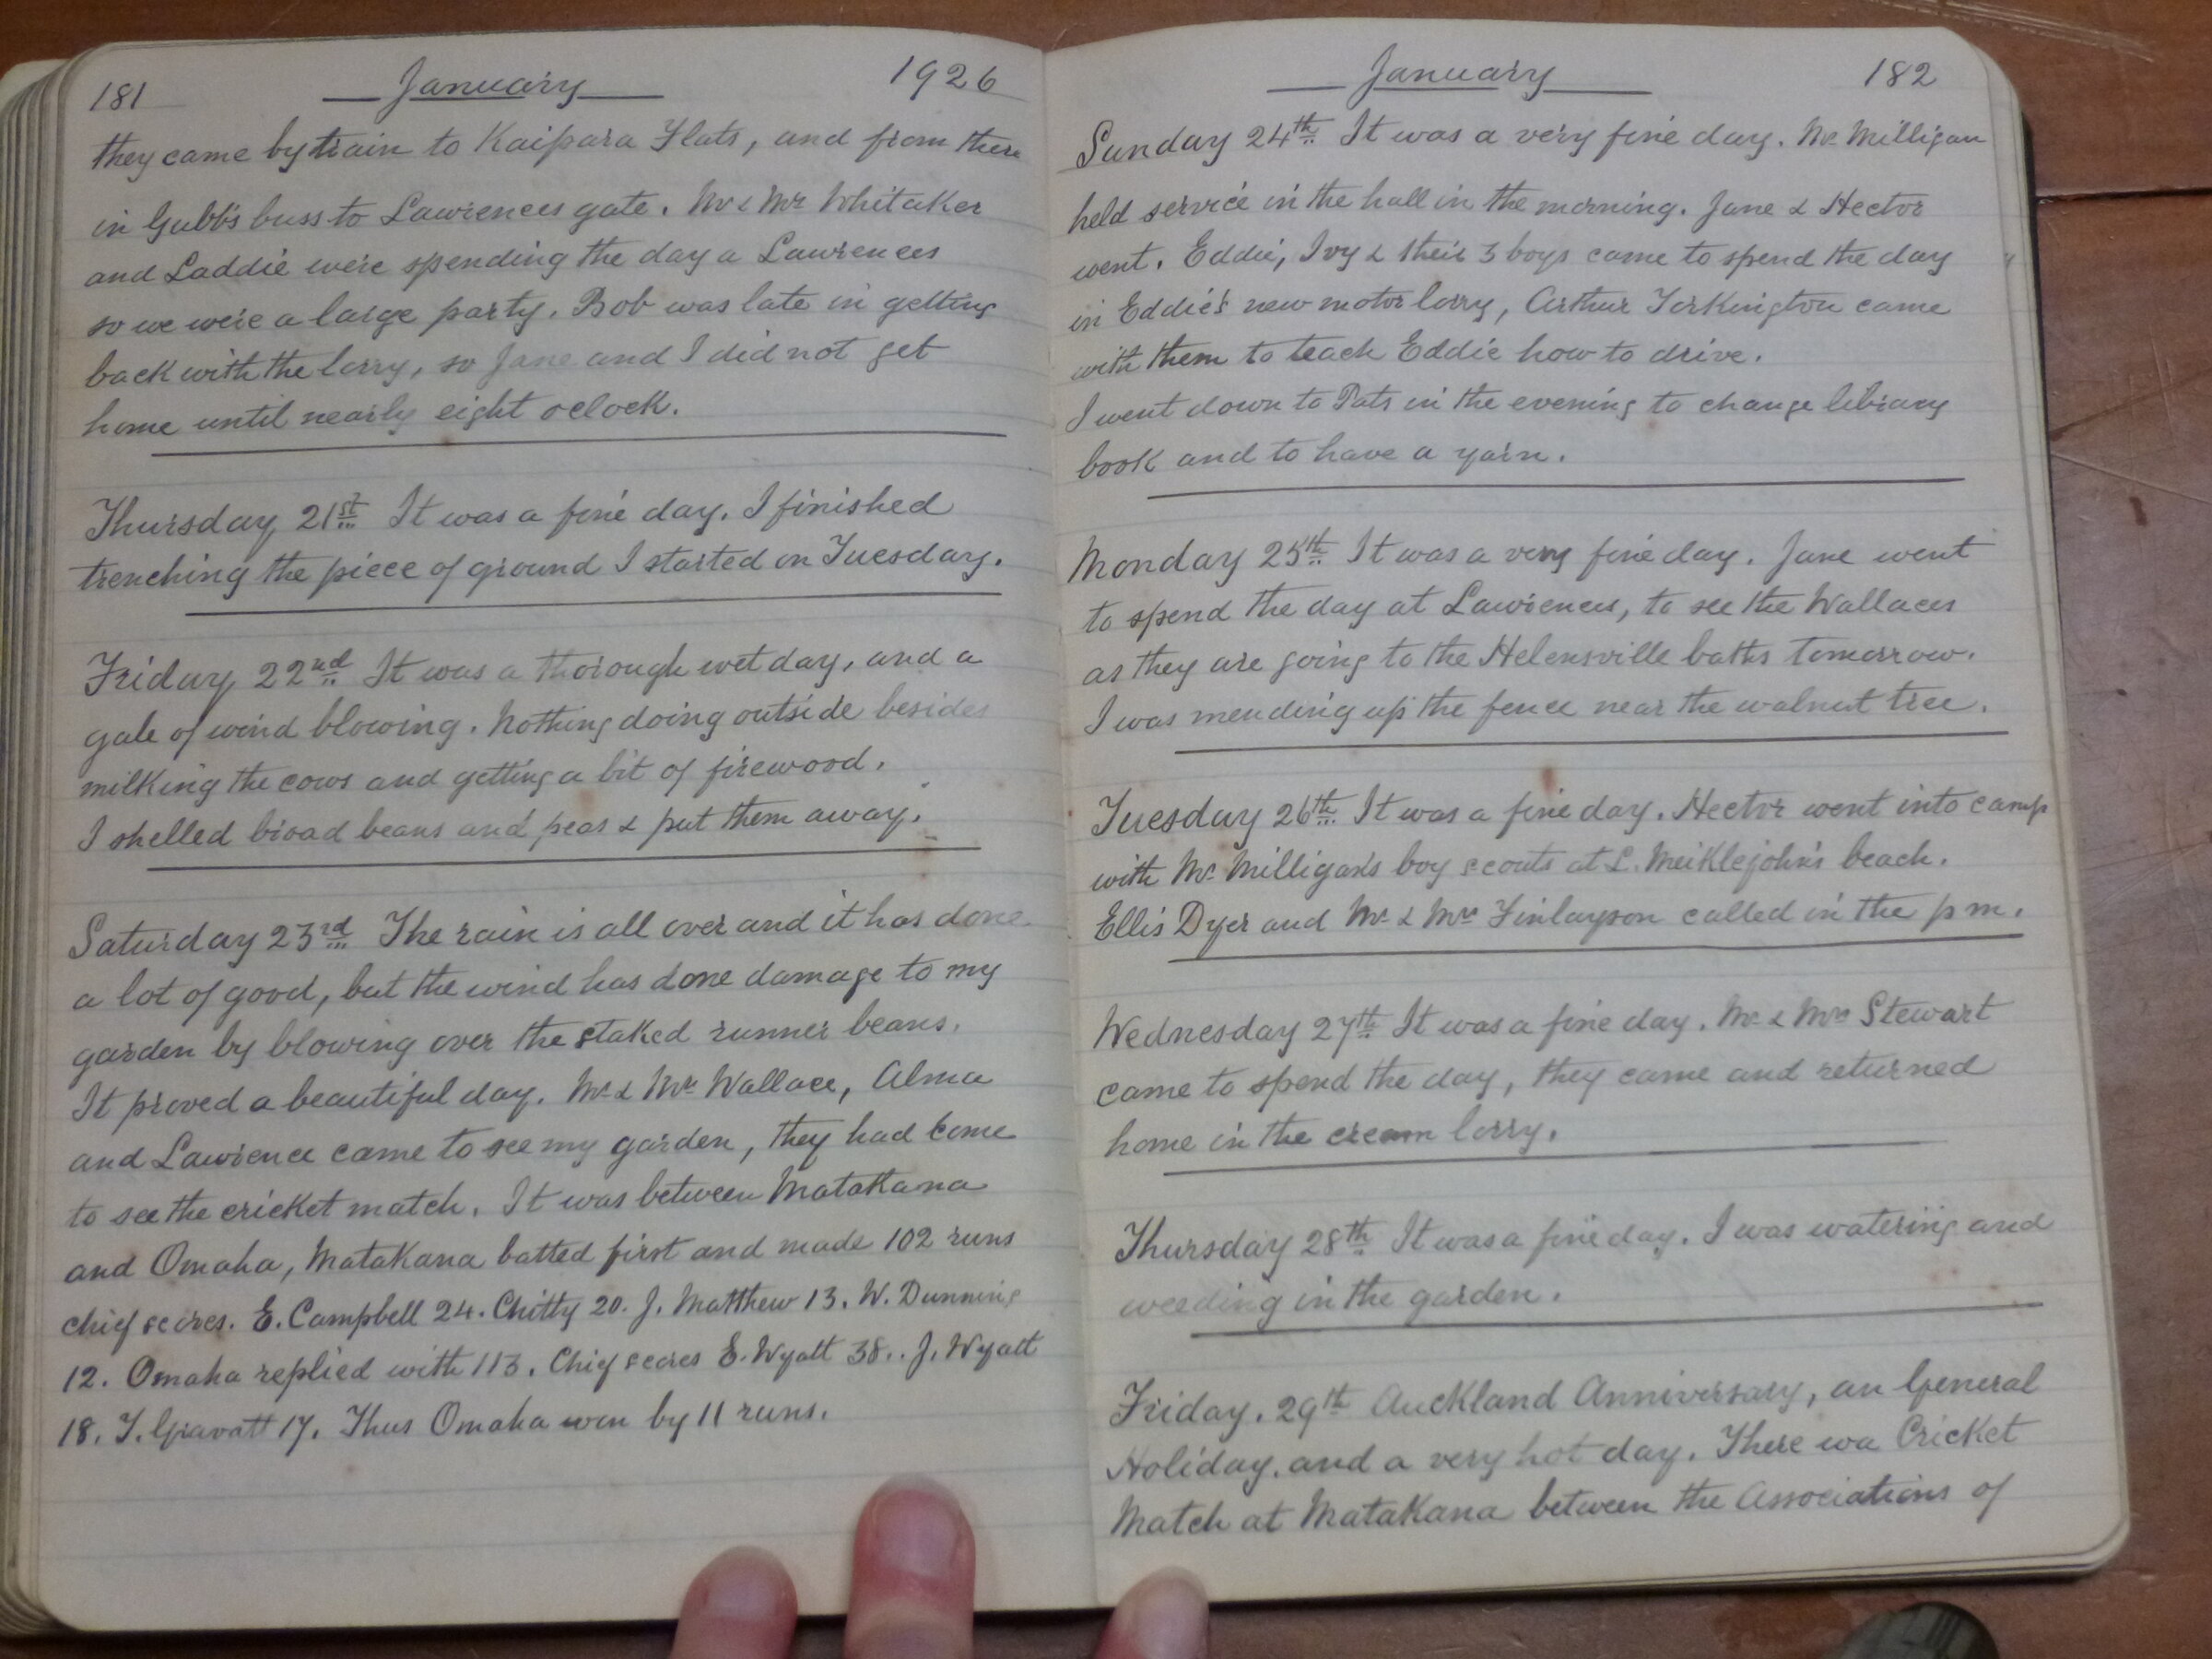 181 January 1926
they came by train to Kaipara Flats, and from there
in Gubb's buss to Lawrences gate. Mr & Mrs Whitaker
and Laddie were spending the day a Lawrences
so we were a large party. Bob was late in getting
back with the lorry, so Jane and I did not get
home until nearly eight oclock.
Thursday 21st It was a fine day. I finished
trenching the piece of ground I started on Tuesday.
Friday 22nd It was a thorough wet day, and a
gale of wind blowing. Nothing doing outside besides
milking the cows and getting a bit of firewood.
I shelled broad beans and peas & put them away.
Saturday 23rd The rain is all over and it has done
a lot of good, but the wind has done damage to my
garden by blowing over the staked runner beans.
It proved a beautiful day. Mr & Mrs Wallace, Alma
and Lawrence came to see my garden, they had come
to see the cricket match. It was between Matakana
and Omaha, Matakana batted first and made 102 runs
chief scores. E. Campbell 24. Chitty 20. J. Matthew 13. W. Dunning
12. Omaha replied with 113. Chief scores E. Wyatt 38.. J. Wyatt
18. T. Gravatt 17. Thus Omaha won by 11 runs.
January 182
Sunday 24th It was a very fine day. Mr Milligan
held service in the hall in the morning. Jane & Hector
went. Eddie, Ivy & their 3 boys came to spend the day
in Eddie's new motor lorry, Arthur Torkington came
with them to teach Eddie how to drive.
I went down to Pats in the evening to change library
book and to have a yarn.
Monday 25th It was a very fine day. Jane went
to spend the day at Lawrences, to see the Wallaces
as they are going to the Helensville baths tomorrow.
I was mending up the fence near the walnut tree.
Tuesday 26th It was a fine day. Hector went into camp
with Mr Milligan's boy scouts at L. Meiklejohn's beach.
Ellis Dyer and Mr & Mrs Finlayson called in the pm.
Wednesday 27th It was a fine day. Mr & Mrs Stewart
came to spend the day, they came and returned
home in the cream lorry.
Thursday 28th It was a fine day. I was watering and
weeding in the garden.
Friday. 29th Auckland Anniversary, an General
Holiday, and a very hot day. There wa Cricket
Match at Matakana between the Associations of